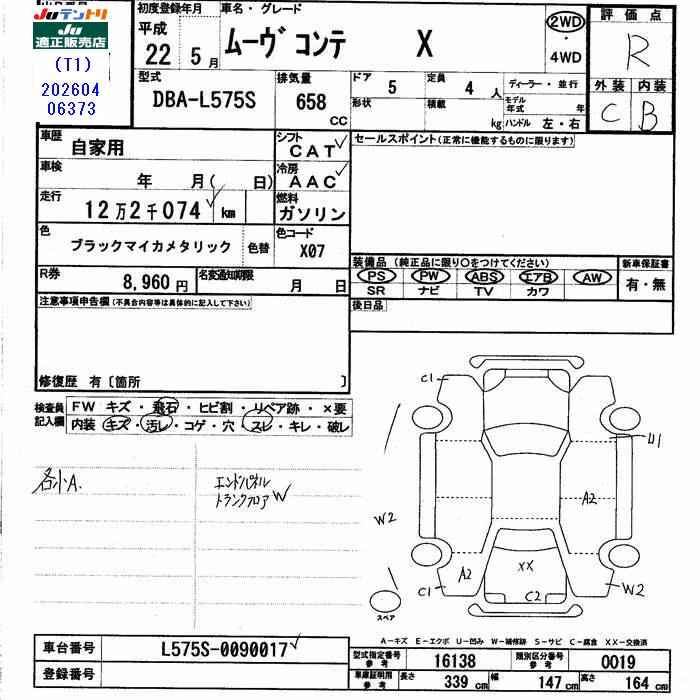 Juテントリ
Ju適正販売店
(T1)
202604
06373
初度登録年月
平成
22 年 5 月
車名・グレード
ムーヴ コンテ X
2WD
4WD
評価点
R
外装 内装
C B
型式
DBA-L575S
排気量
658 CC
ドア 5
定員 4 人
形状
積載 kg
ディーラー・並行
モデル年式 年
ハンドル 左・右
車歴 自家用
シフト CAT
車検 年 月( 日)
冷房 AAC
走行 12万2千074 km
燃料 ガソリン
色 ブラックマイカメタリック 色替
色コード X07
R券 8,960円
名変通知期限 月 日
セールスポイント(正常に機能するものに限ります)
装備品 (純正品に限り○をつけてください)
PS PW ABS エアB AW
SR ナビ TV カワ
新車保証書
有・無
後日品
注意事項申告欄(不具合内容等は具体的に記入して下さい)
修復歴 有〔箇所 〕
検査員記入欄
FW キズ・飛石・ヒビ割・リペア跡・×要
内装 キズ・汚レ・コゲ・穴・スレ・キレ・破レ
各小A.
エンドパネル
トランクフロア W
C1
U1
A2
W2
A2
XX
C1
C2
W2
スペア
A-キズ E-エクボ U-凹み W-補修跡 S-サビ C-腐食 XX-交換済
車台番号 L575S-0090017
登録番号
型式指定番号 参考 16138
類別区分番号 参考 0019
車庫証明用 参考 長さ 339 cm 幅 147 cm 高さ 164 cm